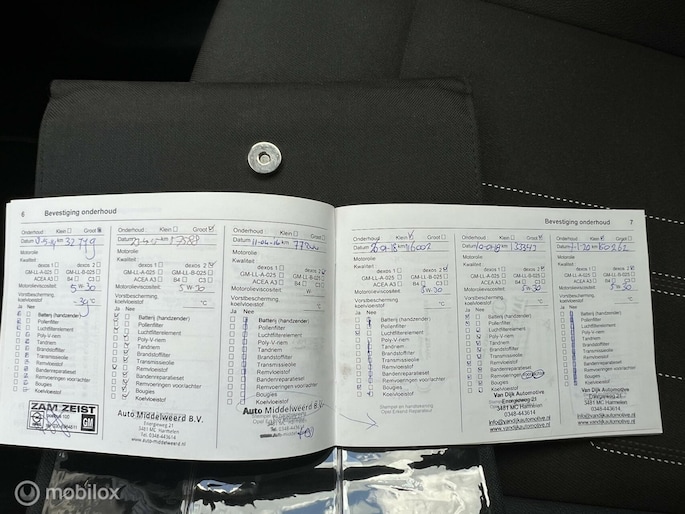 6 Bevestiging onderhoud
Onderhoud : Klein Groot
Datum km 32779
Motorolie
Kwaliteit :
dexos 1 dexos 2
GM-LL-A-025 GM-LL-B-025
ACEA A3 B4 C3
Motorolieviscositeit: 5 W-30
Vorstbescherming,
koelvloeistof -30 °C
Ja Nee
Batterij (handzender)
Pollenfilter
Luchtfilterelement
Poly-V-riem
Tandriem
Brandstoffilter
Transmissieolie
Remvloeistof
Bandenreparatieset
Remvoeringen voor/achter
Bougies
Koelvloeistof
ZAM ZEIST
GM
Onderhoud : Klein Groot
Datum km
Motorolie
Kwaliteit :
dexos 1 dexos 2
GM-LL-A-025 GM-LL-B-025
ACEA A3 B4 C3
Motorolieviscositeit: 5W-30
Vorstbescherming,
koelvloeistof °C
Ja Nee
Batterij (handzender)
Pollenfilter
Luchtfilterelement
Poly-V-riem
Tandriem
Brandstoffilter
Transmissieolie
Remvloeistof
Bandenreparatieset
Remvoeringen voor/achter
Bougies
Koelvloeistof
Auto Middelweerd B.V.
Energieweg 21
3481 MC Harmelen
Tel. 0348-443614
www.auto-middelweerd.nl
Onderhoud : Klein Groot
Datum 11-04-16 km
Motorolie
Kwaliteit :
dexos 1 dexos 2
GM-LL-A-025 GM-LL-B-025
ACEA A3 B4 C3
Motorolieviscositeit: 5 W-30
Vorstbescherming,
koelvloeistof °C
Ja Nee
Batterij (handzender)
Pollenfilter
Luchtfilterelement
Poly-V-riem
Tandriem
Brandstoffilter
Transmissieolie
Remvloeistof
Bandenreparatieset
Remvoeringen voor/achter
Bougies
Koelvloeistof
Auto Middelweerd B.V.
Bevestiging onderhoud 7
Onderhoud : Klein Groot
Datum km
Motorolie
Kwaliteit :
dexos 1 dexos 2
GM-LL-A-025 GM-LL-B-025
ACEA A3 B4 C3
Motorolieviscositeit: 5W-30
Vorstbescherming,
koelvloeistof °C
Ja Nee
Batterij (handzender)
Pollenfilter
Luchtfilterelement
Poly-V-riem
Tandriem
Brandstoffilter
Transmissieolie
Remvloeistof
Bandenreparatieset
Remvoeringen voor/achter
Bougies
Koelvloeistof
Stempel en handtekening
Opel Erkend Reparateur
Onderhoud : Klein Groot
Datum km 133349
Motorolie
Kwaliteit :
dexos 1 dexos 2
GM-LL-A-025 GM-LL-B-025
ACEA A3 B4 C3
Motorolieviscositeit: 5W-30
Vorstbescherming,
koelvloeistof °C
Ja Nee
Batterij (handzender)
Pollenfilter
Luchtfilterelement
Poly-V-riem
Tandriem
Brandstoffilter
Transmissieolie
Remvloeistof
Bandenreparatieset
Remvoeringen
Bougies
Koelvloeistof
Van Dijk Automotive
Energieweg 21
3481 MC Harmelen
0348-443614
info@vandijkautomotive.nl
www.vandijkautomotive.nl
Onderhoud : Klein Groot
Datum km
Motorolie
Kwaliteit :
dexos 1 dexos 2
GM-LL-A-025 GM-LL-B-025
ACEA A3 B4 C3
Motorolieviscositeit: 5W-30
Vorstbescherming,
koelvloeistof °C
Ja Nee
Batterij (handzender)
Pollenfilter
Luchtfilterelement
Poly-V-riem
Tandriem
Brandstoffilter
Transmissieolie
Remvloeistof
Bandenreparatieset
Remvoeringen voor/achter
Bougies
Koelvloeistof
Van Dijk Automotive
Energieweg 21
3481 MC Harmelen
0348-443614
info@vandijkautomotive.nl
www.vandijkautomotive.nl
mobilox